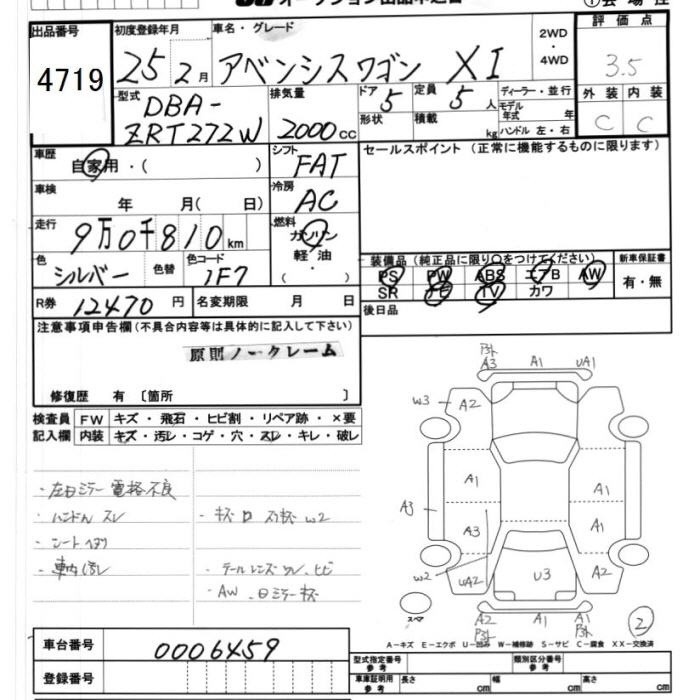 出品番号
4719
初度登録年月
25 2月
車名・グレード
アベンシスワゴン XI
2WD
・
4WD
評価点
3.5
外装 内装
C C
型式
DBA-
ZRT272W
排気量
2000cc
ドア 5
形状
定員 5人
積載 kg
ディーラー・並行
モデル年式 年
ハンドル 左・右
車歴
自家用・( )
シフト
FAT
セールスポイント(正常に機能するものに限ります)
車検
年 月( 日)
冷房
AC
走行
9万0千810km
燃料
ガソリン
軽油
( )
色
シルバー
色替
色コード
1F7
装備品(純正品に限り○をつけてください)
PS PW ABS エアB AW
SR ナビ TV カワ
新車保証書
有・無
R券 12470円
名変期限 月 日
後日品
注意事項申告欄(不具合内容等は具体的に記入して下さい)
原則ノークレーム
修復歴 有〔箇所 〕
検査員
記入欄
FW キズ・飛石・ヒビ割・リペア跡・×要
内装 キズ・汚レ・コゲ・穴・スレ・キレ・破レ
・左日ミラー電格不良
・ハンドルスレ
・シートヘタリ
・車内汚レ
・テールレンズワレ、ヒビ
A3 A1 UA1
W3 A2
A1 A1
A3 A3 A1
W2 UA2 U3 A2
スペア
A2 A1 A1
2
A-キズ E-エクボ U-凹み W-補修跡 S-サビ C-腐食 XX-交換済
車台番号
0006459
登録番号
型式指定番号
参考
類別区分番号
参考
車庫証明用
参考
長さ cm 幅 cm 高さ cm